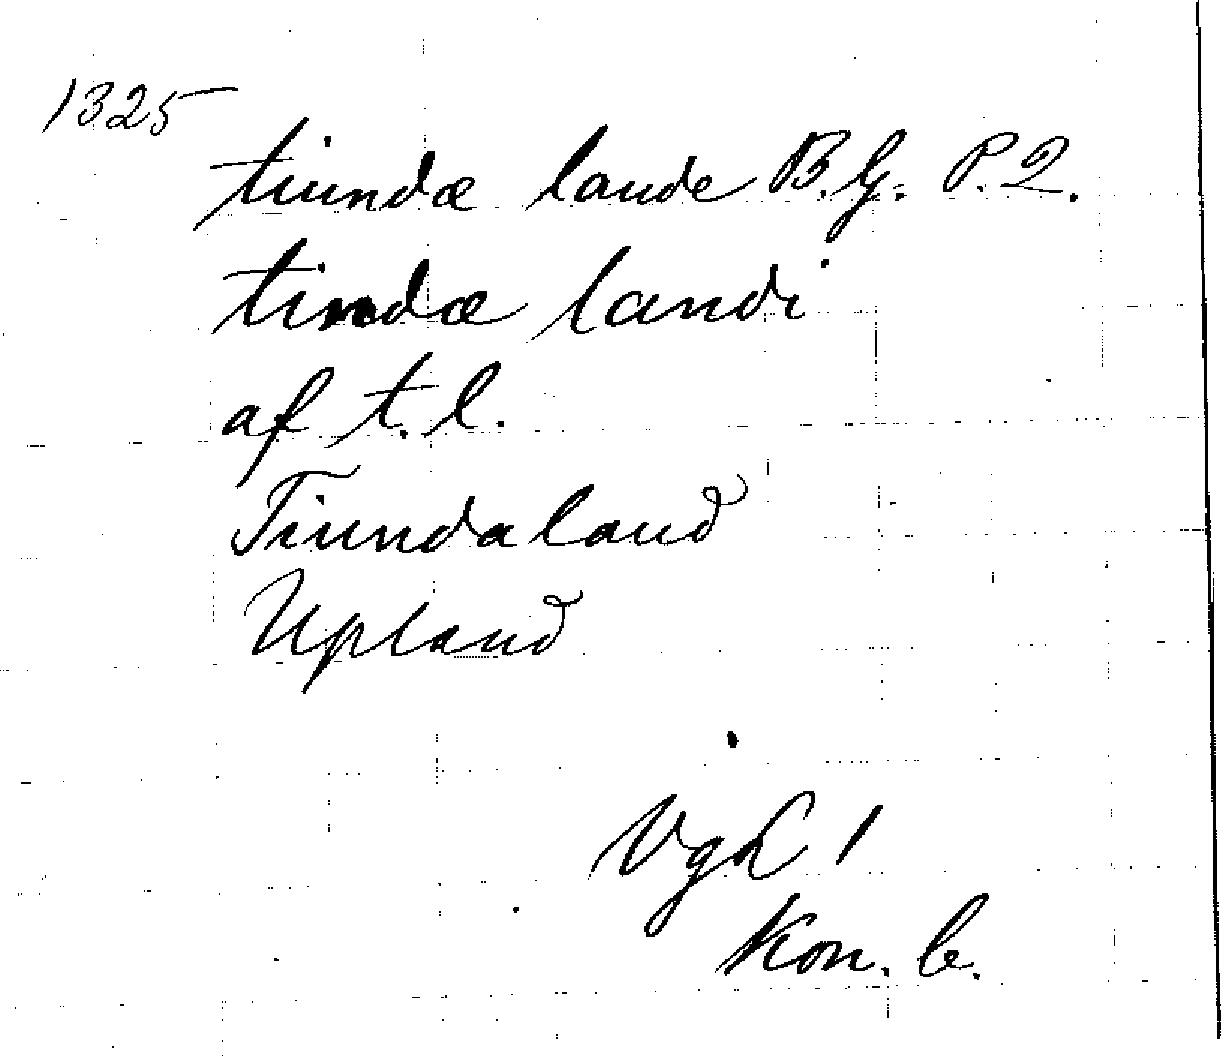 1325
tiundæ lande B.G. P.2.
tindæ landi
af t.l.
Tiundaland
Upland
VgL 1
Kon. b.